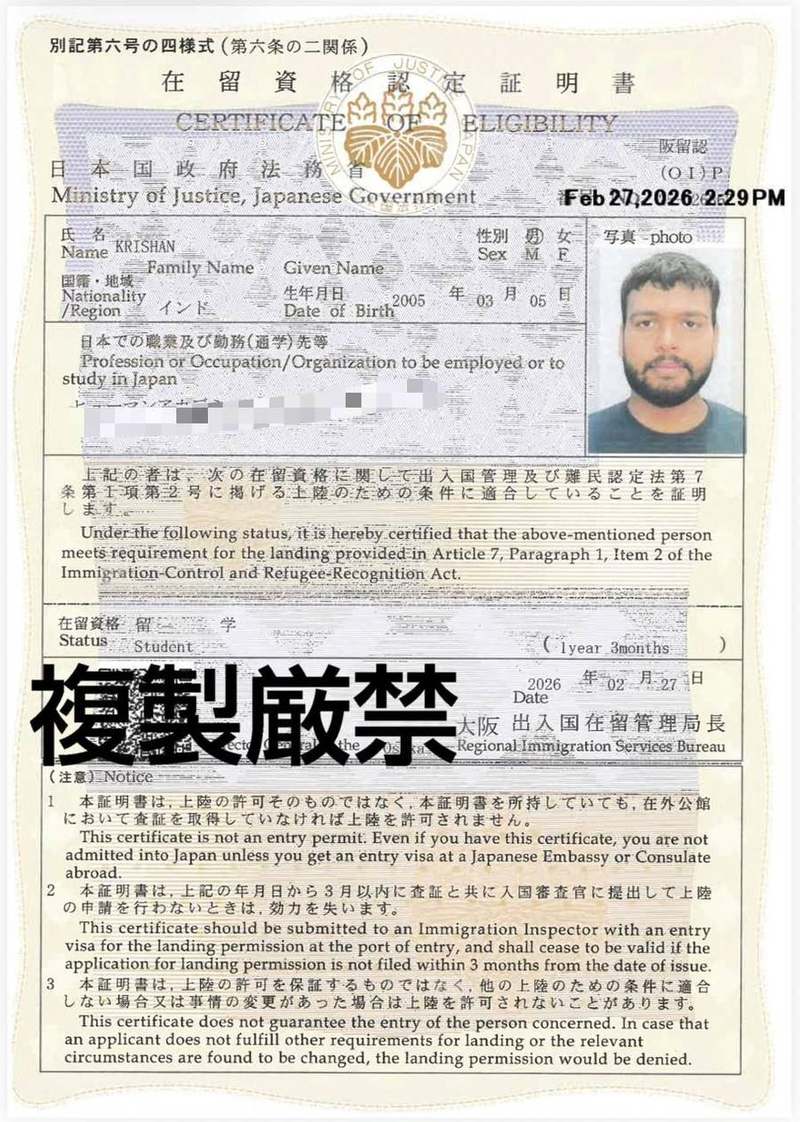 別記第六号の四様式(第六条の二関係)
在留資格認定証明書
MINISTRY OF JUSTICE, JAPAN
CERTIFICATE OF ELIGIBILITY
阪留認
日本国政府法務省
(OI)P
Ministry of Justice, Japanese Government
Feb 27,2026 2:29PM
氏名 KRISHAN
Name
Family Name Given Name
性別 男 女
Sex M F
写真 photo
国籍・地域
Nationality
/Region インド
生年月日 2005 年 03 月 05 日
Date of Birth
日本での職業及び勤務(通学)先等
Profession or Occupation/Organization to be employed or to
study in Japan
上記の者は、次の在留資格に関して出入国管理及び難民認定法第7
条第1項第2号に掲げる上陸のための条件に適合していることを証明
します。
Under the following status, it is hereby certified that the above-mentioned person
meets requirement for the landing provided in Article 7, Paragraph 1, Item 2 of the
Immigration-Control and Refugee-Recognition Act.
在留資格 留 学
Status Student (1year 3months )
2026 年 02 月 27 日
Date
複製厳禁
大阪 出入国在留管理局長
the Osaka Regional Immigration Services Bureau
(注意) Notice
1 本証明書は、上陸の許可そのものではなく、本証明書を所持していても、在外公館
において査証を取得していなければ上陸を許可されません。
This certificate is not an entry permit. Even if you have this certificate, you are not
admitted into Japan unless you get an entry visa at a Japanese Embassy or Consulate
abroad.
2 本証明書は、上記の年月日から3月以内に査証と共に入国審査官に提出して上陸
の申請を行わないときは、効力を失います。
This certificate should be submitted to an Immigration Inspector with an entry
visa for the landing permission at the port of entry, and shall cease to be valid if the
application for landing permission is not filed within 3 months from the date of issue.
3 本証明書は、上陸の許可を保証するものではなく、他の上陸のための条件に適合
しない場合又は事情の変更があった場合は上陸を許可されないことがあります。
This certificate does not guarantee the entry of the person concerned. In case that
an applicant does not fulfill other requirements for landing or the relevant
circumstances are found to be changed, the landing permission would be denied.